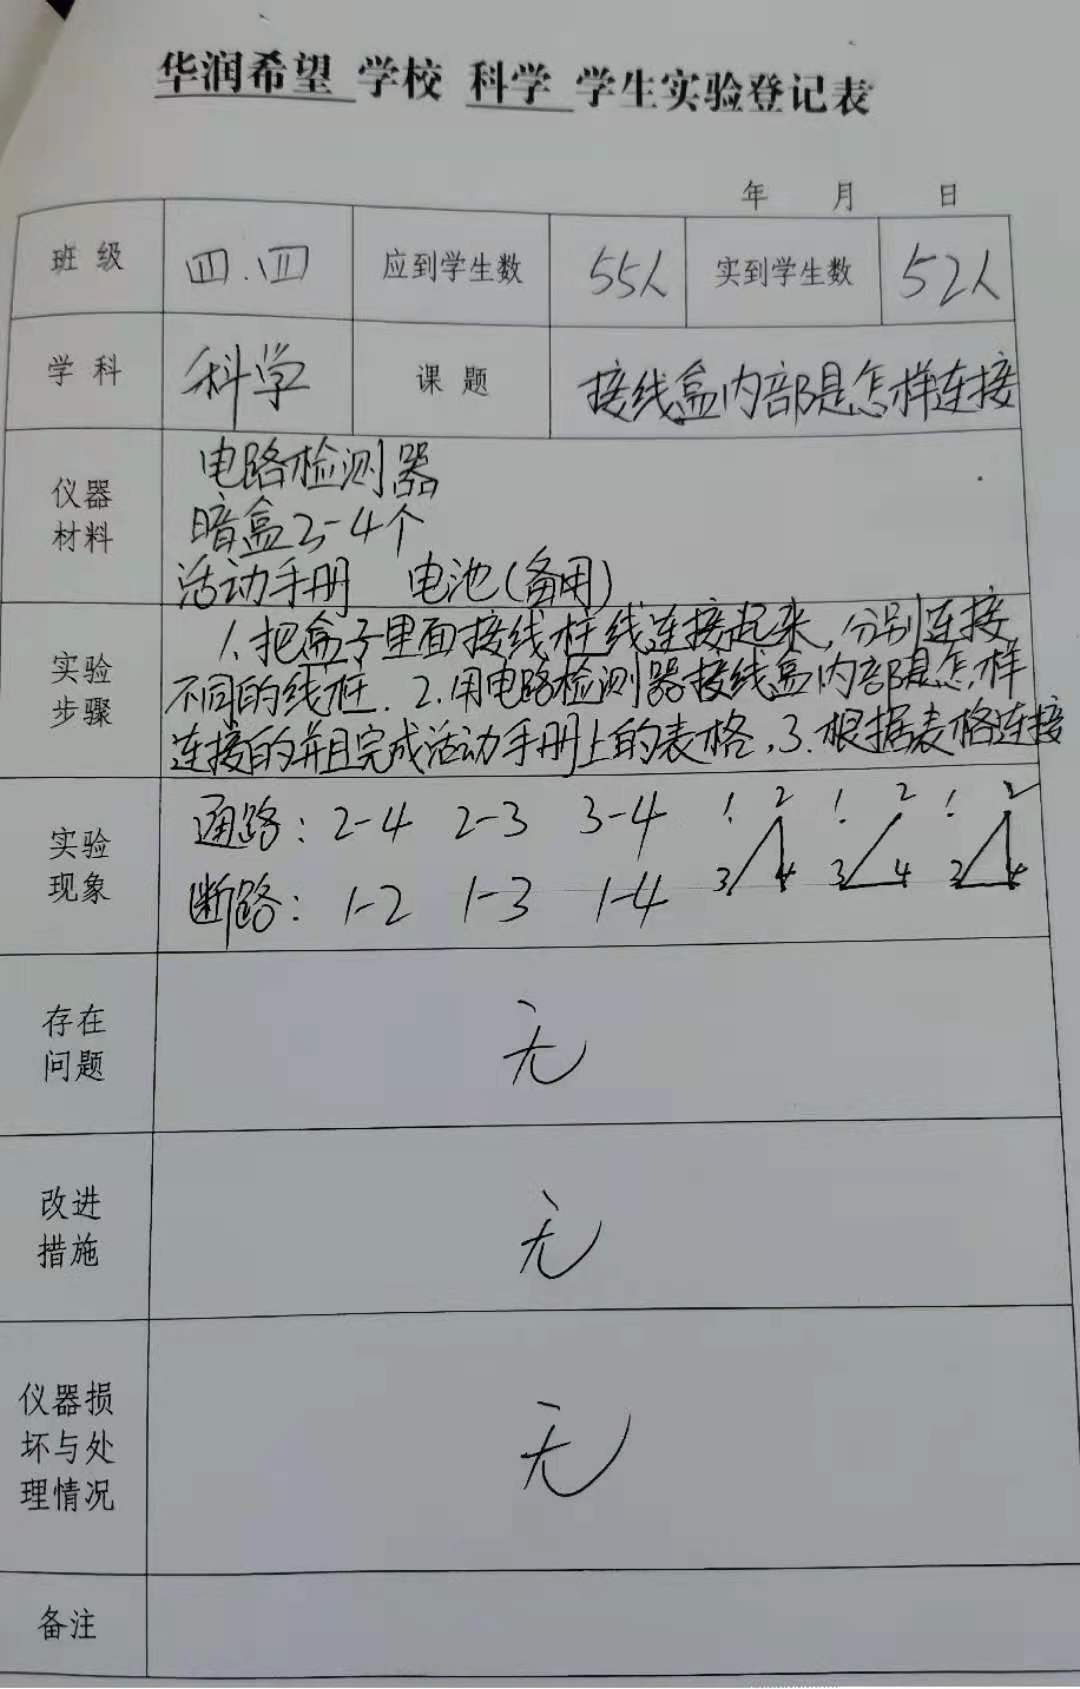 华润希望 学校 科学 学生实验登记表
年 月 日
班 级 四.四 应到学生数 55人 实到学生数 52人
学 科 科学 课 题 接线盒内部是怎样连接
仪器
材料
电路检测器
暗盒3-4个
活动手册 电池(备用)
实验
步骤
1.把盒子里面接线柱线连接起来,分别连接
不同的线桩. 2.用电路检测器接线盒内部是怎样
连接的并且完成活动手册上的表格,3.根据表格连接
实验
现象
通路: 2-4 2-3 3-4 1. 2 1. 2 1. 2
3 4 3 4 3 4
断路: 1-2 1-3 1-4
存在
问题
无
改进
措施
无
仪器损
坏与处
理情况
无
备注